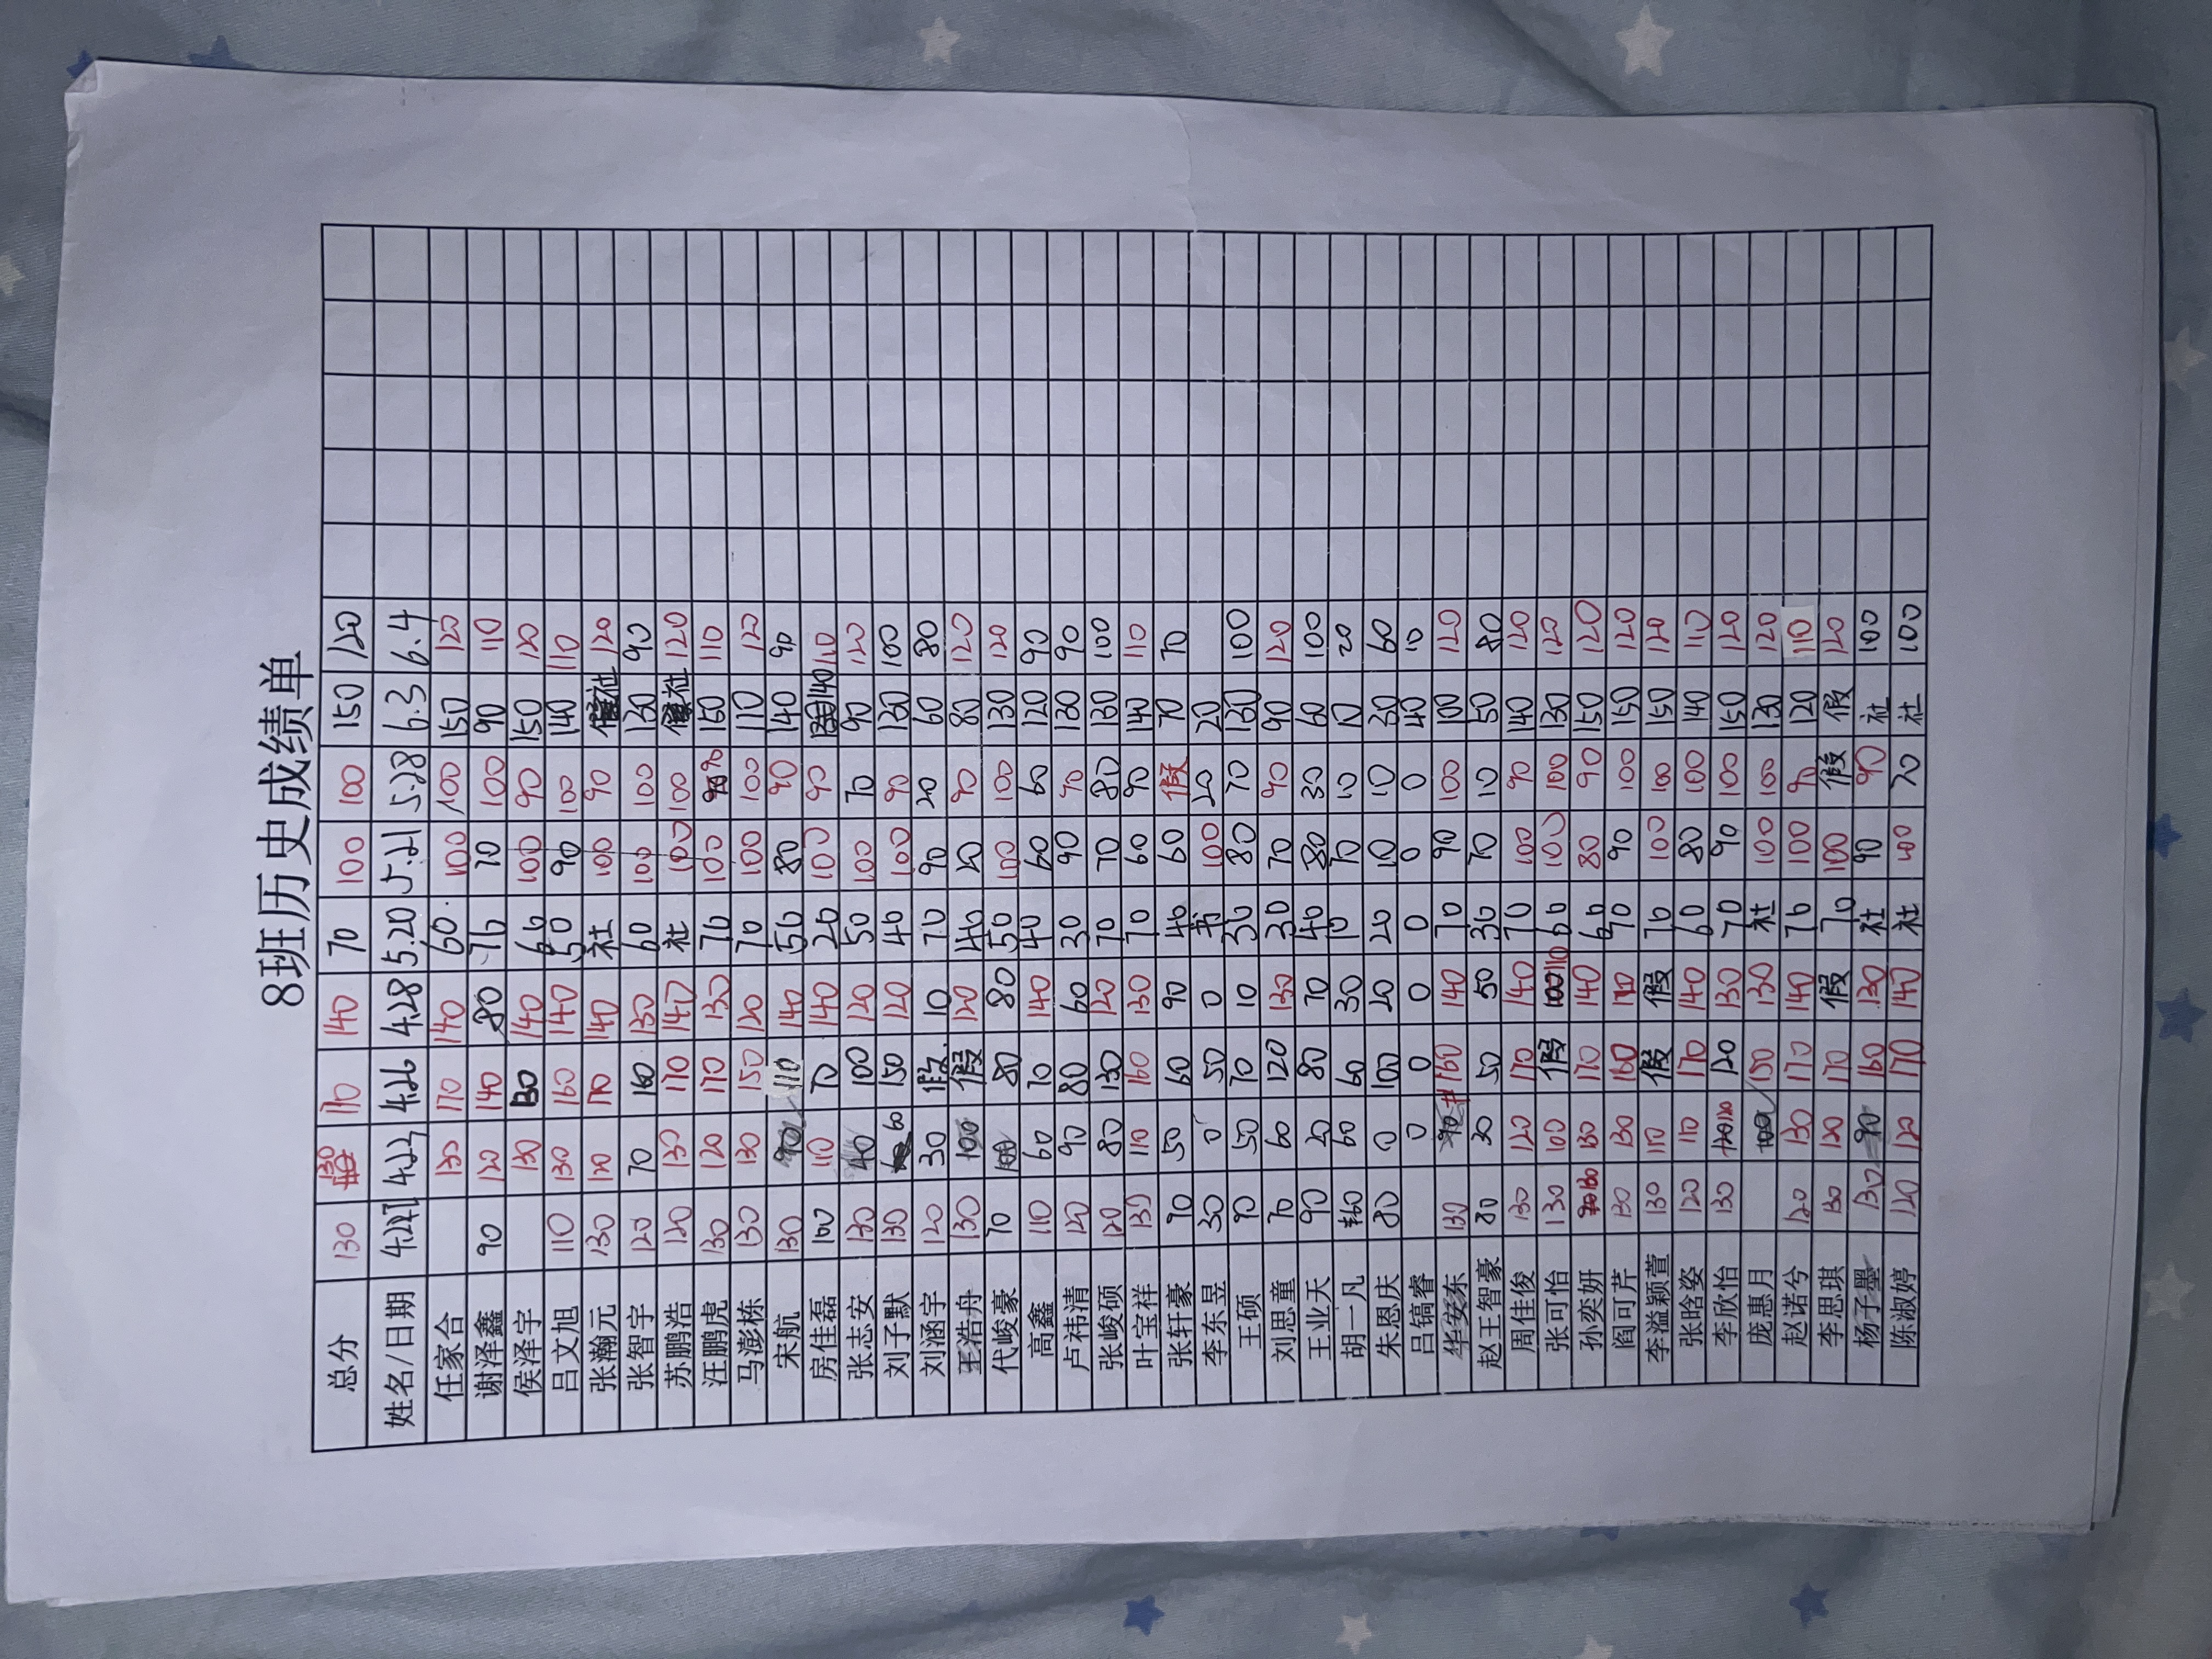 8班历史成绩单
总分 130 130 170 140 70 100 100 150 120
姓名/日期 4.23 4.26 4.28 5.20 5.21 5.28 6.3 6.4
任家合 130 170 140 60 100 100 150 120
谢泽鑫 90 120 140 80 70 70 100 90 110
侯泽宇 130 130 140 60 100 90 150 120
吕文旭 110 130 160 140 50 90 100 140 110
张瀚元 130 120 170 140 社 100 90 社 120
张智宇 120 70 160 130 60 100 100 130 90
苏鹏浩 120 130 170 140 社 100 100 社 120
汪鹏虎 130 120 170 130 70 100 90 150 110
马澎栋 130 130 150 120 70 100 100 110 120
宋航 130 90 110 140 50 80 90 140 90
房佳磊 100 110 70 140 20 100 90 140 110
张志安 130 40 100 120 50 100 70 90 120
刘子默 130 60 150 120 40 100 90 130 100
刘涵宇 120 30 假 10 70 90 20 60 80
王浩舟 130 100 假 120 40 20 90 80 120
代峻豪 70 100 80 80 50 100 100 130 120
高鑫 110 60 70 140 40 60 60 120 90
卢祎清 120 90 80 60 30 90 90 130 90
张峻硕 120 80 130 120 70 70 80 130 100
叶宝祥 130 110 160 130 70 60 90 140 110
张轩豪 90 50 60 90 40 60 假 70 70
李东昱 30 0 50 0 书 100 20 20
王硕 90 50 70 10 30 80 70 130 100
刘思童 70 60 120 130 30 70 90 90 120
王业天 90 20 80 70 40 80 30 60 100
胡一凡 60 60 60 30 10 70 10 10 20
朱恩庆 80 0 100 20 20 10 10 30 60
吕镐睿 0 0 0 0 0 0 40 10
华安东 130 90 160 140 70 90 100 100 120
赵王智豪 80 30 50 50 30 70 10 50 80
周佳俊 130 120 170 140 70 100 90 140 120
张可怡 130 100 假 110 60 100 100 130 120
孙奕妍 130 130 170 140 60 80 90 150 120
阎可芹 130 130 160 110 70 90 100 150 120
李溢颖萱 130 110 假 假 70 100 100 150 120
张晗姿 120 110 170 140 60 80 100 140 110
李欣怡 130 120 120 130 70 90 100 150 120
庞惠月 100 150 130 社 100 100 130 120
赵诺兮 120 130 170 140 70 100 90 120 110
李思琪 130 120 170 假 70 100 假 假 120
杨子墨 130 90 160 130 社 90 90 社 100
陈淑婷 120 120 170 140 社 100 70 社 100